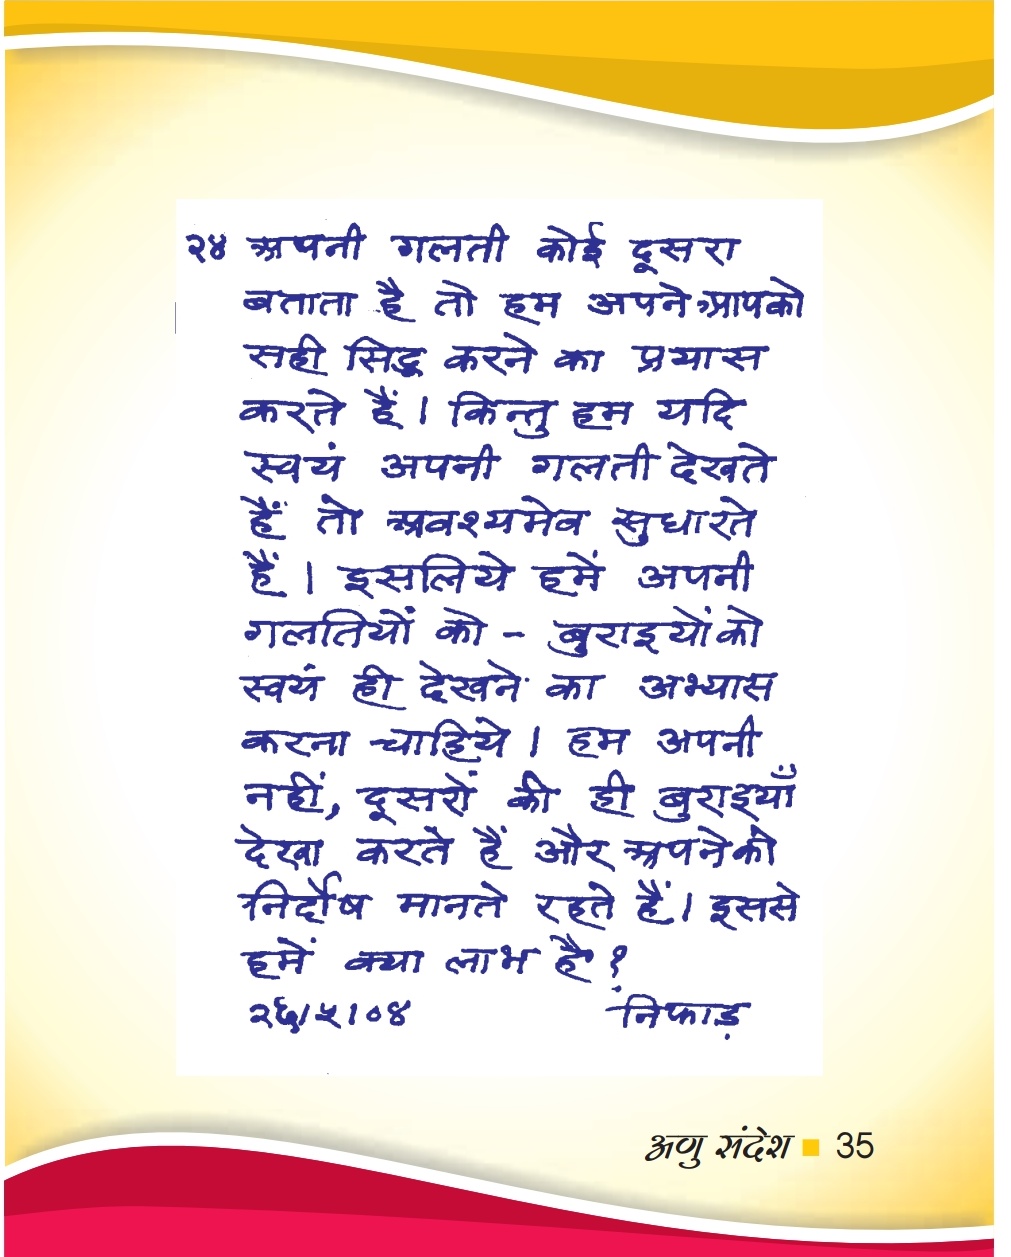 २४ अपनी गलती कोई दूसरा
बताता है तो हम अपने आपको
सही सिद्ध करने का प्रयास
करते हैं । किन्तु हम यदि
स्वयं अपनी गलती देखते
हैं तो अवश्यमेव सुधारते
हैं । इसलिये हमें अपनी
गलतियों को - बुराइयों को
स्वयं ही देखने का अभ्यास
करना चाहिये । हम अपनी
नहीं, दूसरों की ही बुराइयाँ
देखा करते हैं और अपने को
निर्दोष मानते रहते हैं । इससे
हमें क्या लाभ है ?
२६/५/०४ निफाड़
अणु संदेश ■ 35